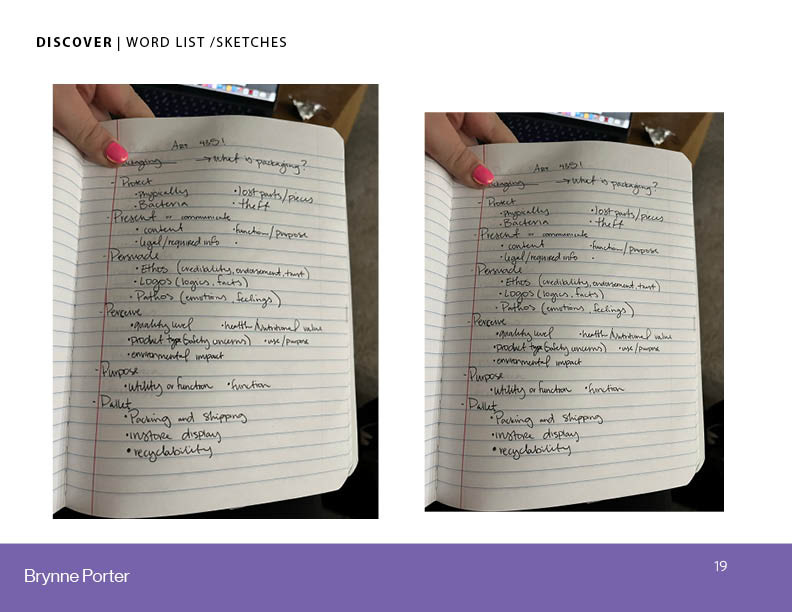 DISCOVER | WORD LIST /SKETCHES
Art 4351
Packaging → What is packaging?
- Protect
• Physically • lost parts/pieces
• Bacteria • theft
- Present or communicate
• content • function/purpose
• legal/required info •
- Persuade
• Ethos (credibility, endorsement, trust)
• Logos (logics, facts)
• Pathos (emotions, feelings)
- Perceive
• quality level • health/Nutritional value
• product type (safety concerns) • use/purpose
• environmental impact
- Purpose
• utility or function • function
- Pallet
• Packing and shipping
• instore display
• recyclability
Art 4351
Packaging → What is packaging?
- Protect
• Physically • lost parts/pieces
• Bacteria • theft
- Present or communicate
• content • function/purpose
• legal/required info •
- Persuade
• Ethos (credibility, endorsement, trust)
• Logos (logics, facts)
• Pathos (emotions, feelings)
- Perceive
• quality level • health/Nutritional value
• product type (safety concerns) • use/purpose
• environmental impact
- Purpose
• utility or function • function
- Pallet
• Packing and shipping
• instore display
• recyclability
Brynne Porter
19